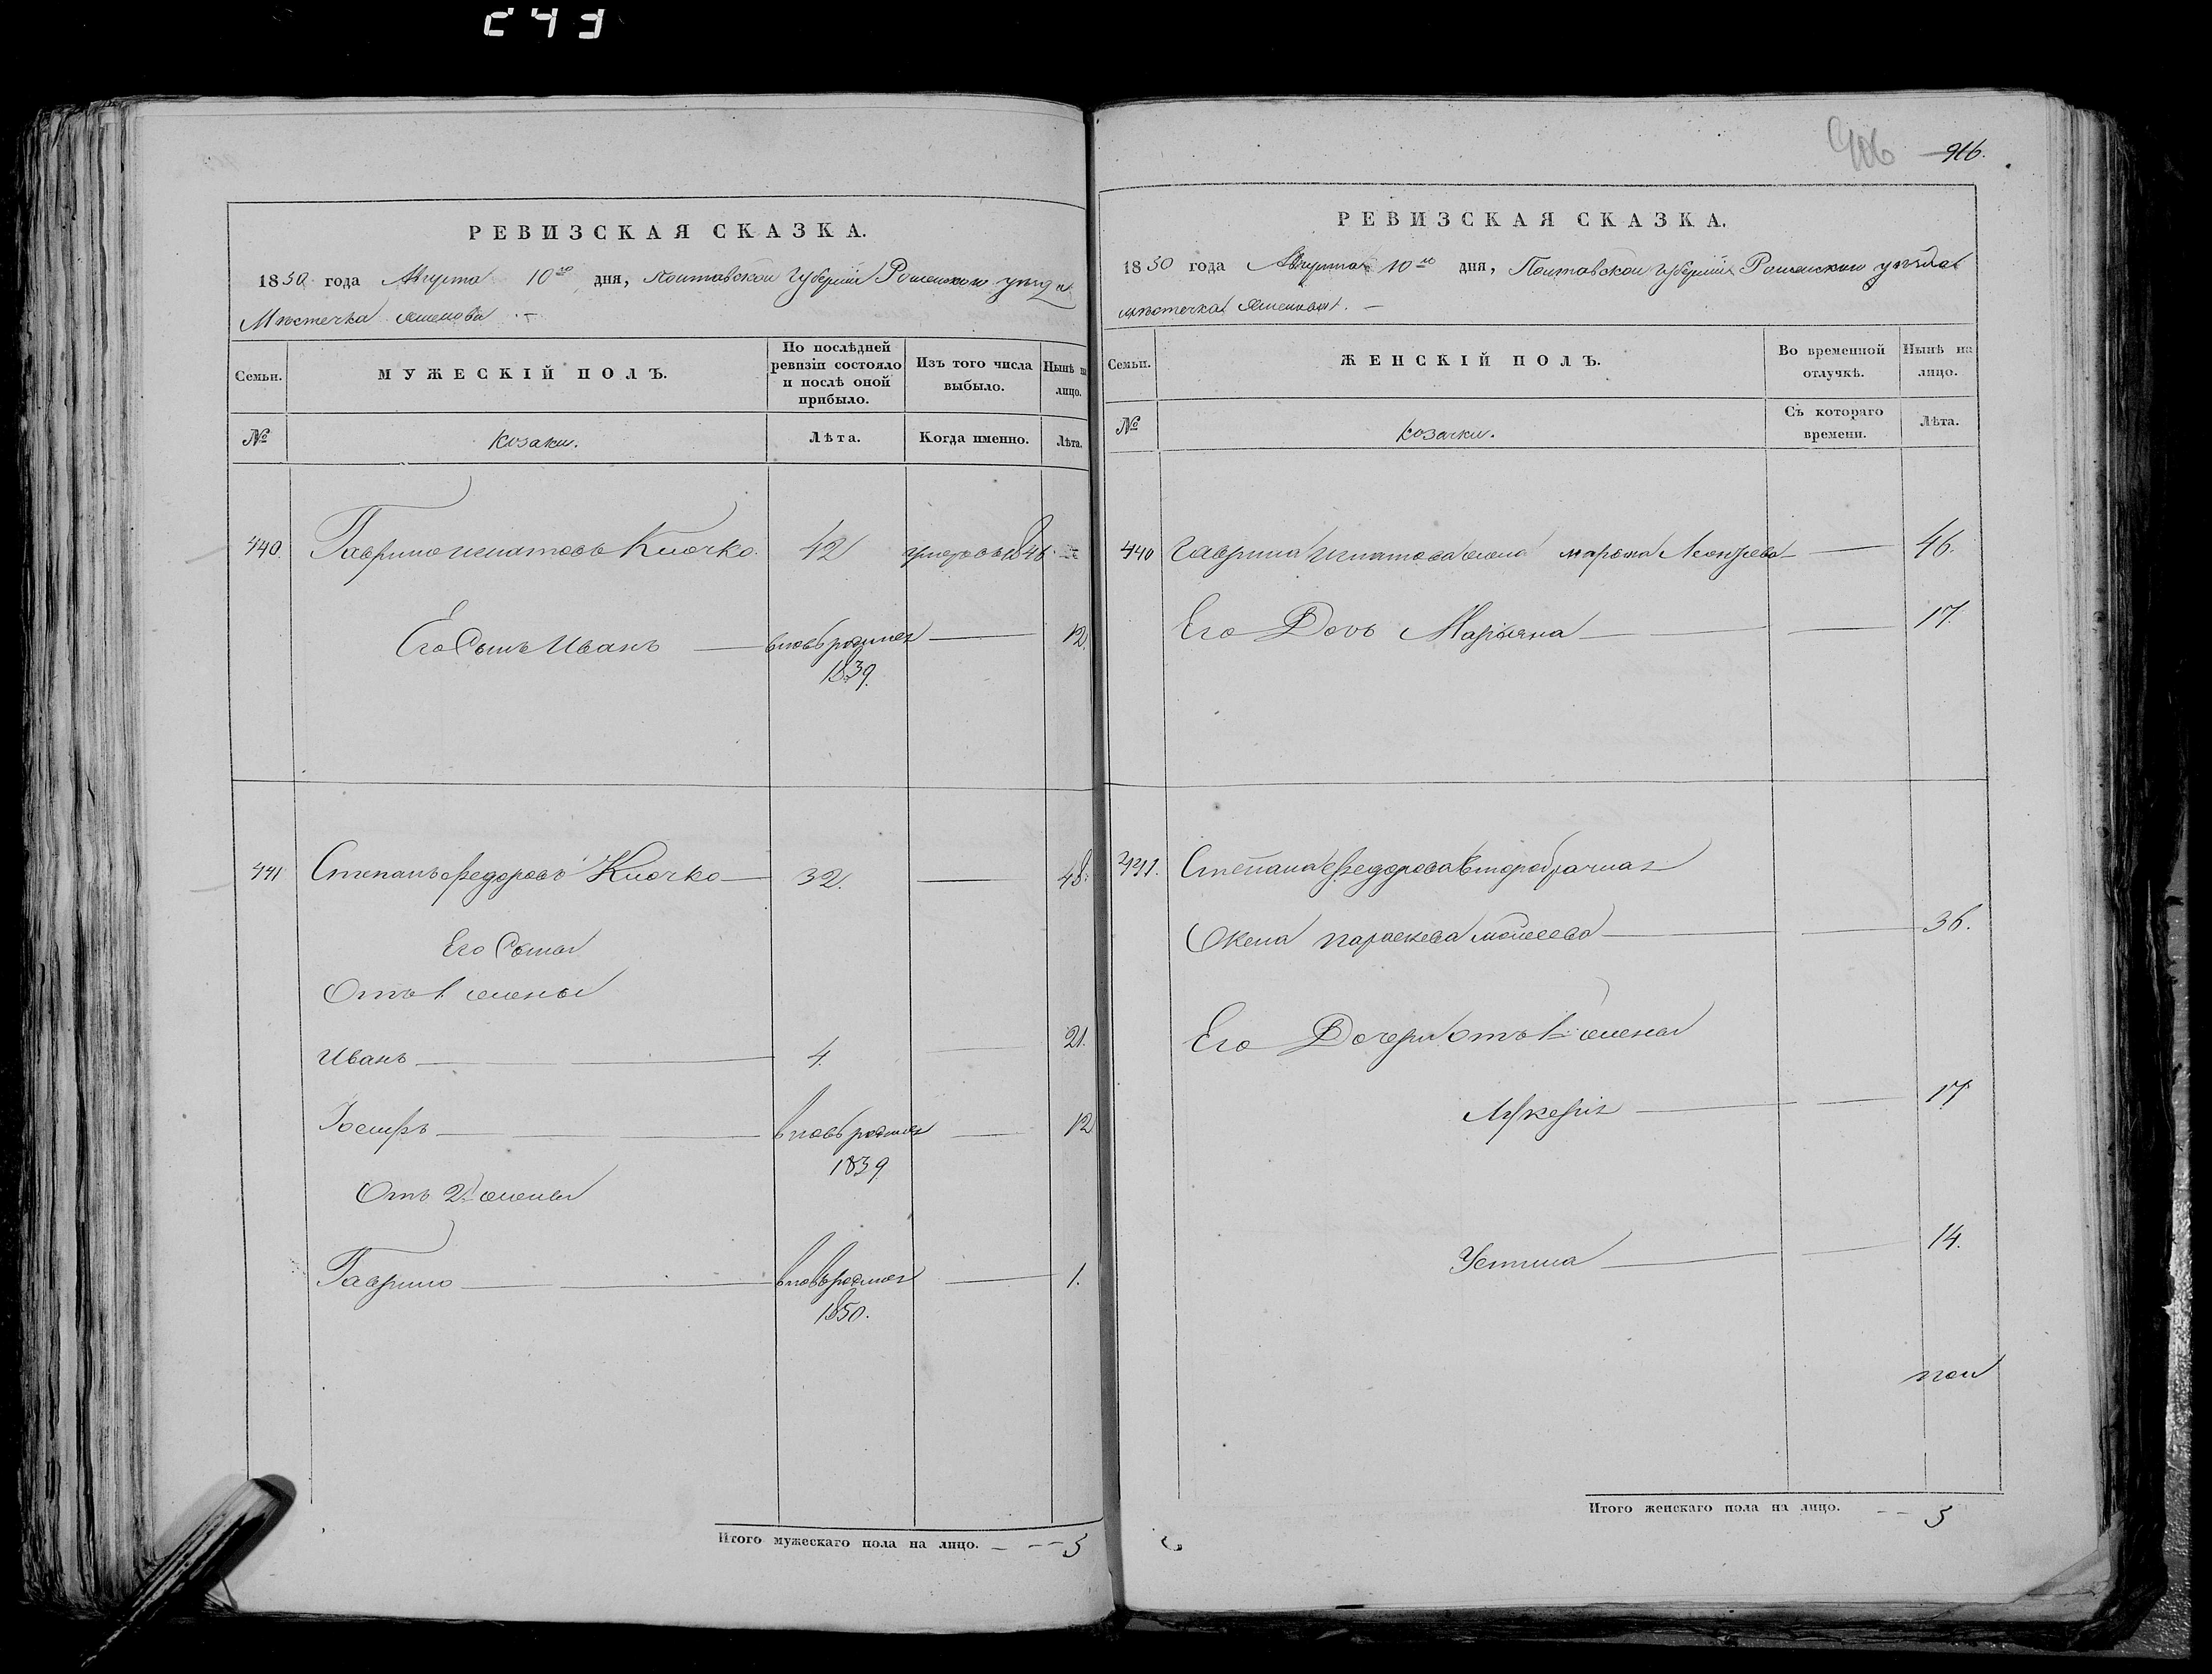 РЕВИЗСКАЯ СКАЗКА.
1850 года Августа 10го дня, Полтавской Губерніи Роменского уезда
Местечка
Семьи.
МУЖЕСКІЙ ПОЛЪ.
По послѣдней ревизіи состояло и послѣ оной прибыло.
Изъ того числа выбыло.
Нынѣ на лицо.
№
Козаки.
Лѣта.
Когда именно.
Лѣта.
440. Гаврило Игнатовъ Клочко. 42 умеръ въ 1846
Его Сынъ Иванъ вновь рожден 12.
1839.
441 Степанъ Федоровъ Клочко 32. 48.
Его Сыны
Отъ 1 жены
Иванъ 4. 21.
Іосифъ вновь рожден 12
1839
Отъ 2й жены
Гаврило вновь рожден 1.
1850.
Итого мужескаго пола на лицо. 5
906 916.
РЕВИЗСКАЯ СКАЗКА.
1850 года Августа 10го дня, Полтавской Губерніи Роменского уѣзда
местечка
Семьи.
ЖЕНСКІЙ ПОЛЪ.
Во временной отлучкѣ.
Нынѣ на лицо.
№
Козачки.
Съ котораго времени.
Лѣта.
440 Гаврила Игнатова жена Марфа 46.
Его Дочь Маріяна 17.
441. Степана Федорова второбрачная
Жена Параскева Мойсеева 36.
Его Дочери отъ 1й жены
Лукерія 17
Устина 14.
Итого женскаго пола на лицо. 5